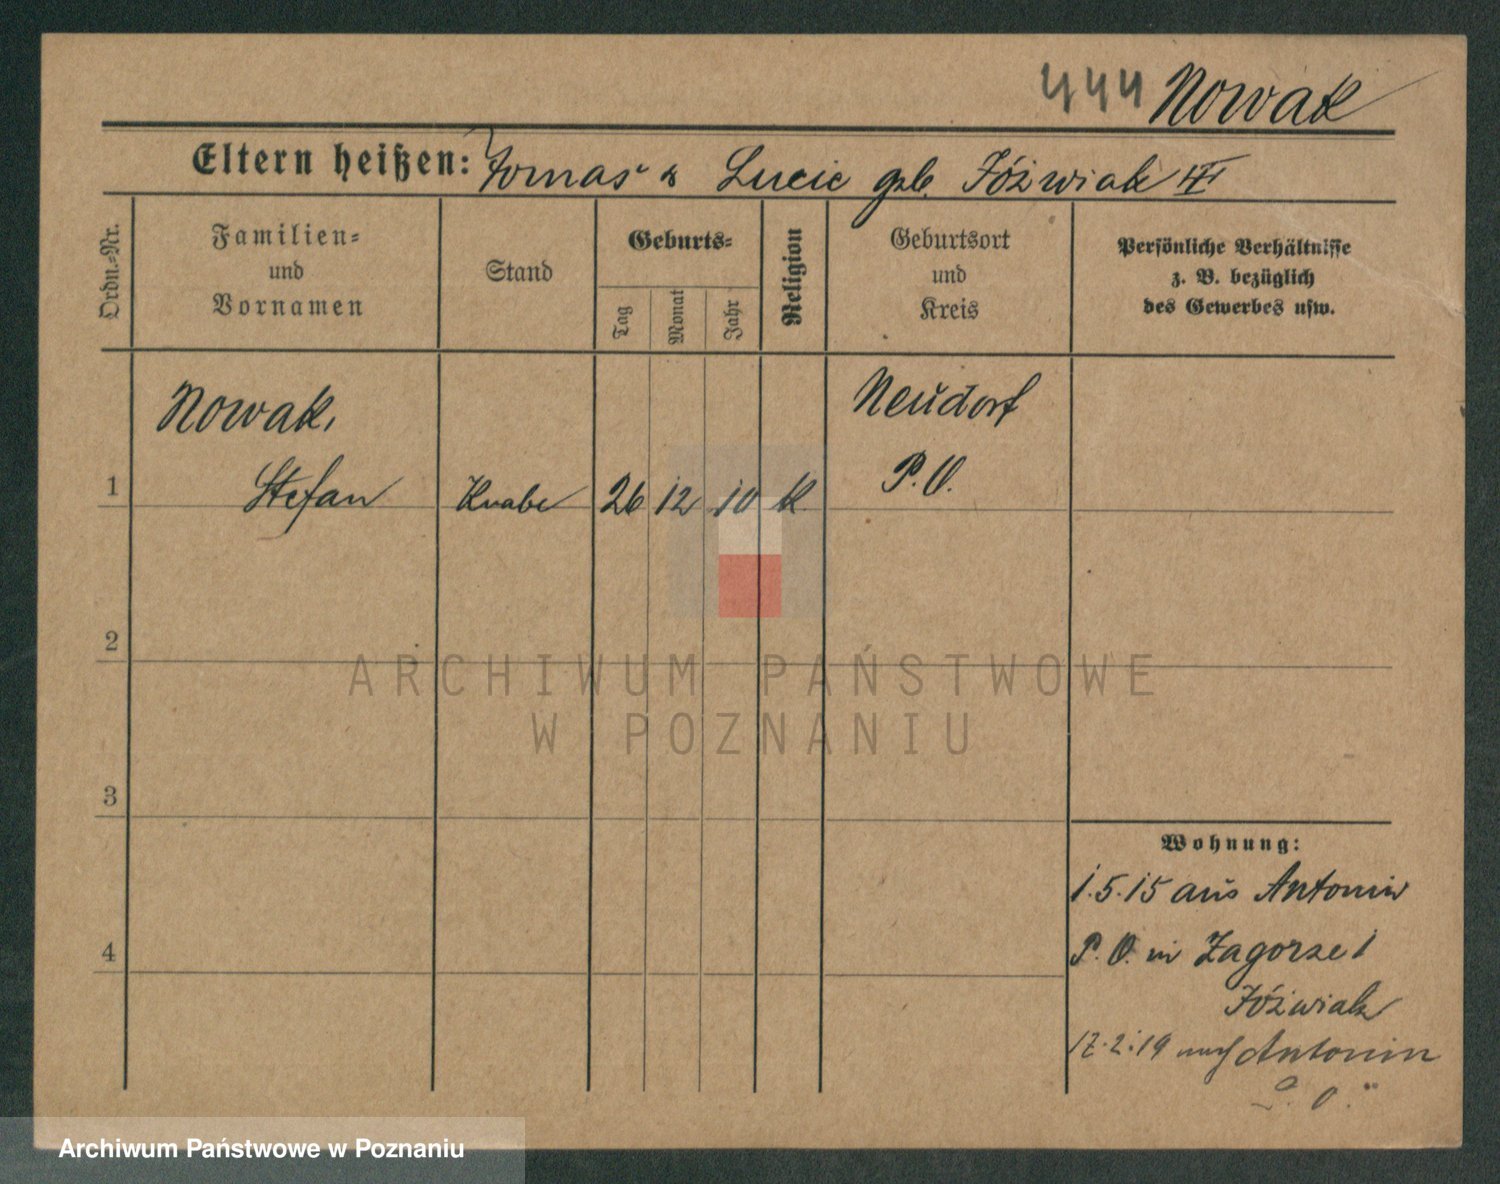 444 Nowak
Eltern heißen: Tomas & Lucie geb. Jóźwiak
Ordn.-Nr.
Familien-
und
Vornamen
Stand
Geburts-
Tag
Monat
Jahr
Religion
Geburtsort
und
Kreis
Persönliche Verhältnisse
z. B. bezüglich
des Gewerbes usw.
Nowak,
Neudorf
1 Stefan Knabe 26 12 10 k P.O.
2
ARCHIWUM PAŃSTWOWE
W POZNANIU
3
Wohnung:
1.5.15 aus Antonin
4
P.O. in Zagorze 1
Jóźwiak
17.2.19 nach Antonin
Archiwum Państwowe w Poznaniu